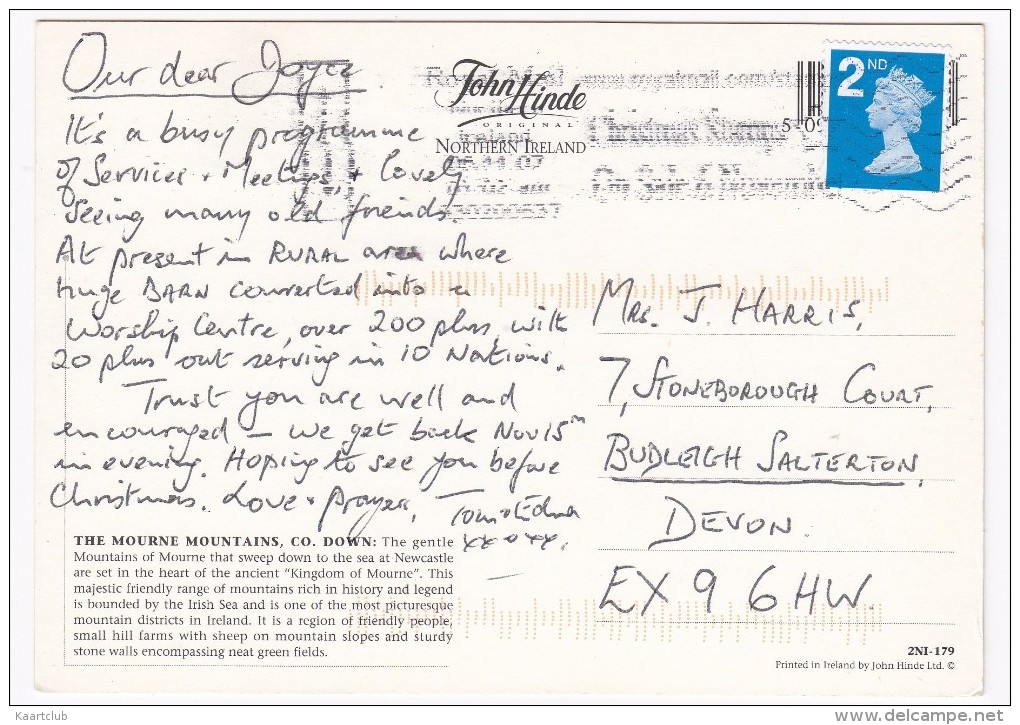 Our dear Joyce
It's a busy programme
of Services + Meetings, + lovely
seeing many old friends.
At present in RURAL area where
huge BARN converted into a
Worship Centre, over 200 plus, with
20 plus out serving in 10 Nations.
Trust you are well and
encouraged – we get back Nov 15th
in evening. Hoping to see you before
Christmas. Love + prayer, Tom + Edna
xx o xx.
THE MOURNE MOUNTAINS, CO. DOWN: The gentle
Mountains of Mourne that sweep down to the sea at Newcastle
are set in the heart of the ancient "Kingdom of Mourne". This
majestic friendly range of mountains rich in history and legend
is bounded by the Irish Sea and is one of the most picturesque
mountain districts in Ireland. It is a region of friendly people,
small hill farms with sheep on mountain slopes and sturdy
stone walls encompassing neat green fields.
John Hinde
ORIGINAL
NORTHERN IRELAND
Royal Mail
Ireland
Christmas Stamps
On Sale 6 November
5 0
2ND
MRS. J. HARRIS,
7, STONEBOROUGH COURT,
BUDLEIGH SALTERTON,
DEVON.
EX9 6HW.
2NI-179
Printed in Ireland by John Hinde Ltd. ©
Kaartclub
delcampe.net